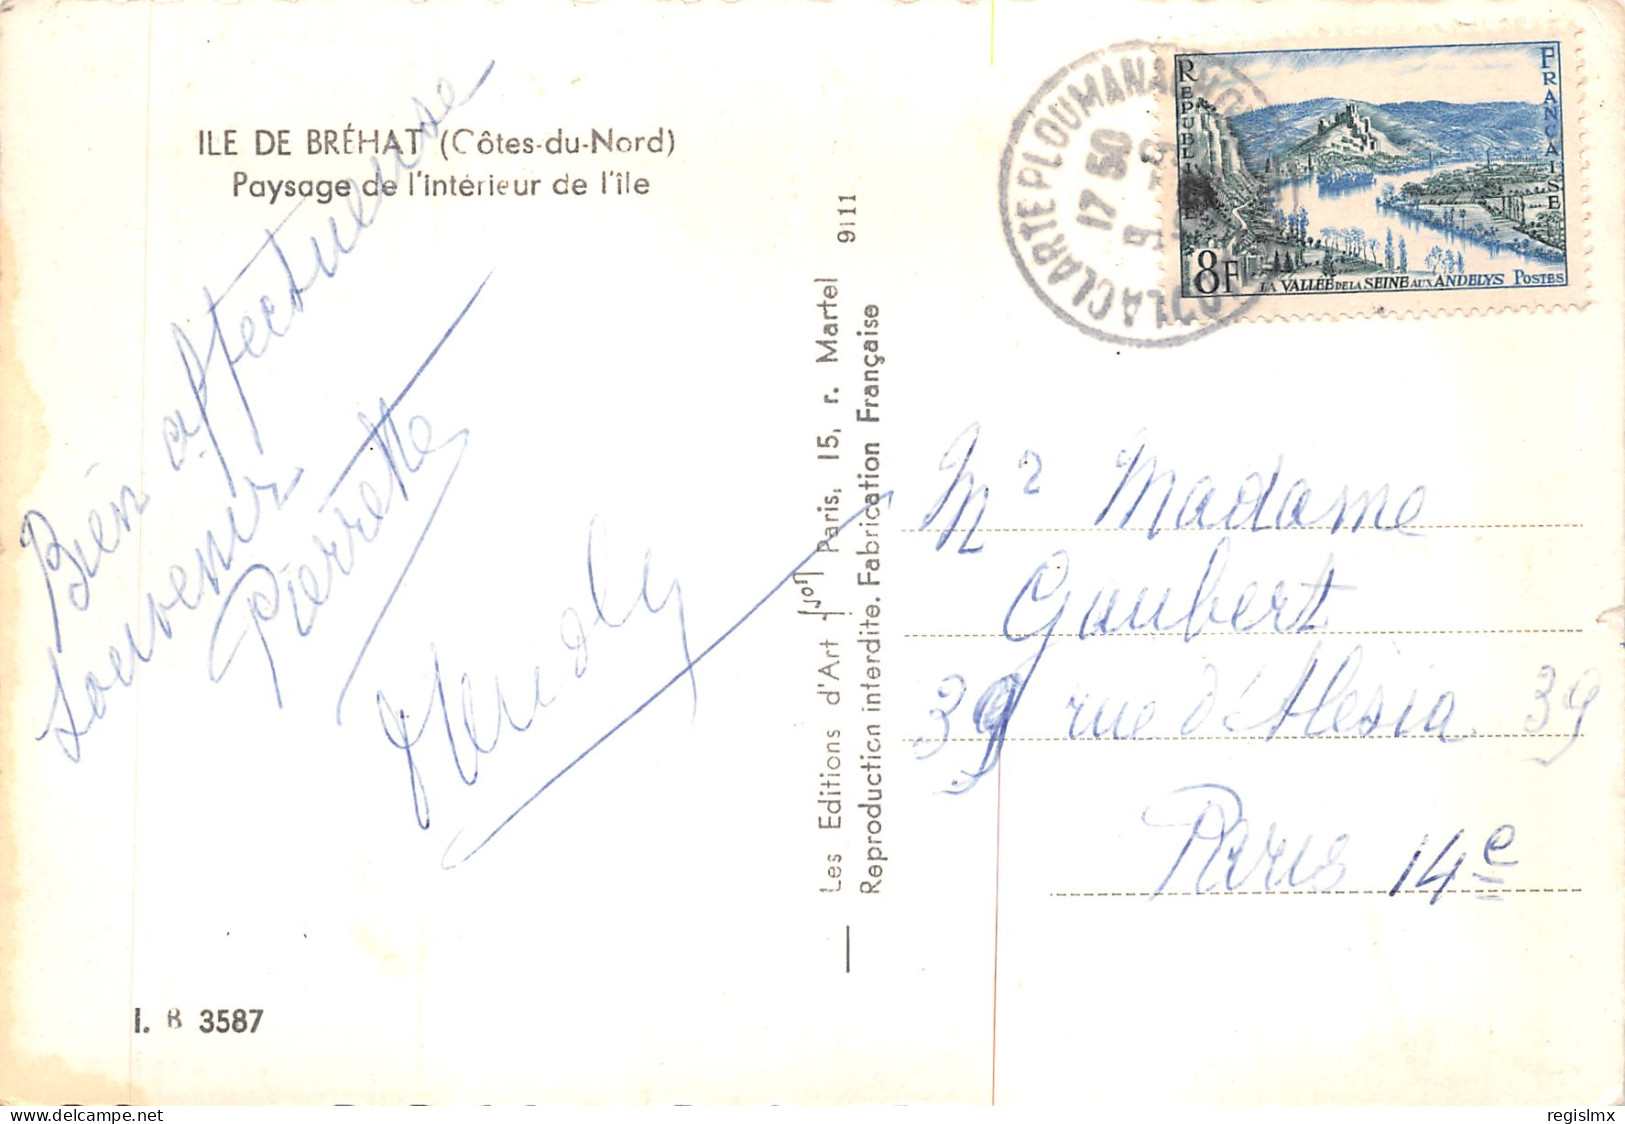 ILE DE BRÉHAT (Côtes-du-Nord)
Paysage de l'intérieur de l'île
Bien affectueuse
souvenir
Pierrette
I. B 3587
Les Editions d'Art Yvon Paris, 15, r. Martel 9111
Reproduction interdite. Fabrication Française
LA CLARTE PLOUMANA
17 50
REPUBLIQUE
FRANÇAISE
8F
LA VALLÉE DE LA SEINE AUX ANDELYS POSTES
Mr Madame
Gaubert
39 rue d'Alesia 39
Paris 14e
delcampe.net
regislmx